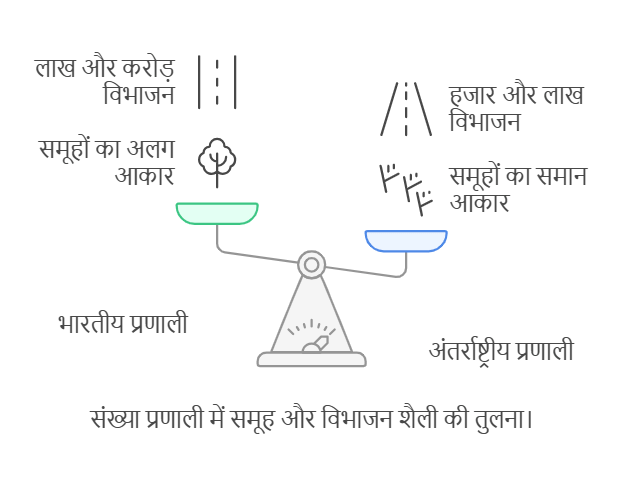 लाख और करोड़
विभाजन
समूहों का अलग
आकार
हजार और लाख
विभाजन
समूहों का समान
आकार
भारतीय प्रणाली
अंतर्राष्ट्रीय प्रणाली
संख्या प्रणाली में समूह और विभाजन शैली की तुलना।